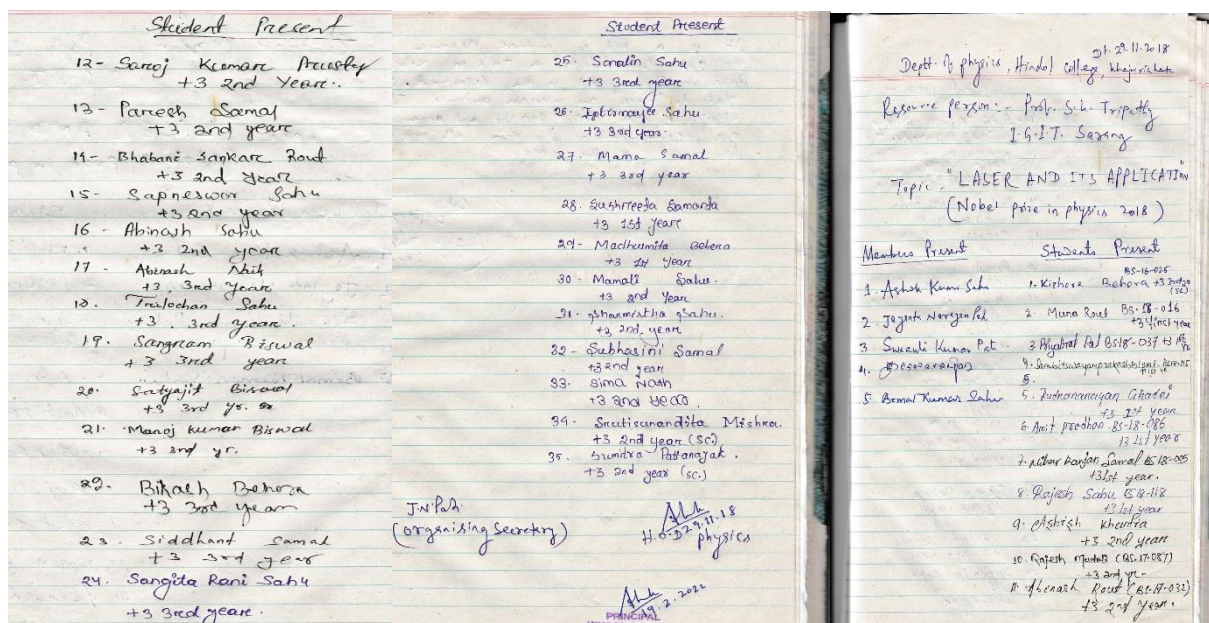 Student Present
12- Saroj Kumar
+3 2nd Year.
13- Pareesh Samal
+3 2nd year
14- Bhabani Sankar Rout
+3 2nd year
15- Sapneswor Sahu
+3 2nd year
16 - Abinash Sahu
+3 2nd year
17 - Abinash
+3. 3rd year
18. Trilochan Sahu
+3. 3rd year.
19. Sangram Biswal
+3 3rd year
20. Satyajit Biswal
+3 3rd yr.
21. Manoj Kumar Biswal
+3 3rd yr.
22. Bikash Behera
+3 3rd year
23. Siddhant Samal
+3 3rd year
24. Sangita Rani Sahu
+3 3rd year.
Student Present
25. Sonalin Sahu
+3 3rd year
26. Sahu
+3 3rd year
27. Mama Samal
+3 3rd year
28. Sushreeta Samanta
+3 1st Year
29- Madhumita Behera
+3 1st Year
30. Mamali Sahu.
+3 2nd Year
31. Sharmistha Sahu.
+3 2nd year
32- Subhasini Samal
+3 2nd year
33. Sima Nath
+3 2nd year
34. Srutisunandita Mishra.
+3 2nd year (SC.)
35. Sumitra Pattanayak.
+3 2nd year (SC.)
J.N.Pati
(Organising Secretary)
29.11.18
H.O.D physics
19.2.2022
PRINCIPAL
Dt. 29.11.2018
Deptt. of physics, Hindol College, Khajuriakata
Resource person:- Prof. S.K. Tripathy
I.G.I.T. Sarang
Topic - "LASER AND ITS APPLICATION"
(Nobel prize in physics 2018)
Members Present
1. Ashok Kumar Sahu
2. Jayanta Narayan Pati
3. Kumar Pati
4.
5. Bimal Kumar Sahu
Students Present
BS-16-025
1. Kishore Behera +3 3rd yr
(SC)
2. Muna Rout BS-18-016
+3 first year
3 Pal BS18-037 +3 1st
4.
5.
5. Rudranarayan Ghadei
+3 1st year
6. Amit pradhan. BS-18-086
+3 1st year
7. Ranjan Samal BS18-005
+3 1st year.
8. Rajesh Sahu BS18-118
+3 1st year
9. Ashish Khuntia
+3 2nd year
10. Rajesh (BS-17-087)
+3 2nd yr-
11. Abinash Rout (BS-17-032)
+3 2nd Year.